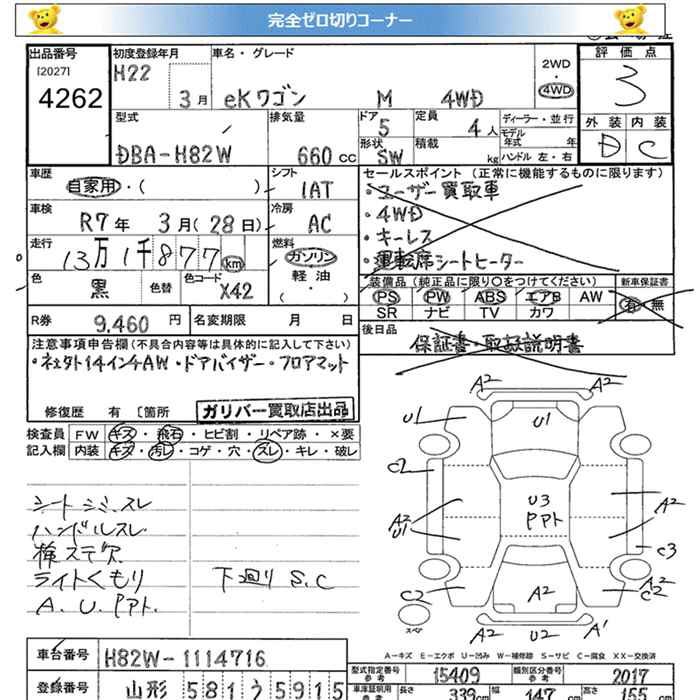 完全ゼロ切りコーナー
出品番号 初度登録年月 車名・グレード 2WD 評価点
[2027] H22 3月 eKワゴン M 4WD 4WD 3
4262
型式 排気量 ドア 5 定員 4人 ディーラー・並行 外装 内装
モデル年式 年
DBA-H82W 660cc 形状 SW 積載 kg ハンドル 左・右 D C
車歴 シフト セールスポイント (正常に機能するものに限ります)
自家用・( ) IAT ・ユーザー買取車
車検 冷房 ・4WD
R7年 3月(28日) AC ・キーレス
走行 燃料 ・運転席シートヒーター
13万1千877km ガソリン
色 色替 色コード 軽油 装備品 (純正品に限り○をつけてください) 新車保証書
黒 X42 ( ) PS PW ABS エアB AW 有・無
SR ナビ TV カワ
R券 9,460円 名変期限 月 日 後日品
注意事項申告欄(不具合内容等は具体的に記入して下さい) 保証書・取扱説明書
・社外14インチAW・ドアバイザー・フロアマット
修復歴 有 〔箇所 ガリバー買取店出品
検査員 FW キズ・飛石・ヒビ割・リペア跡・×要
記入欄 内装 キズ・汚レ・コゲ・穴・スレ・キレ・破レ
シートシミ、スレ
ハンドルスレ
検ステ欠
ライトくもり 下廻り S.C
A.U.PPt.
A2 A2
U1 U1
C2
A2 U1 U3 PPt A2
C3
C2 A2 A2 C2
スペア A2 U2 A1
A-キズ E-エクボ U-凹み W-補修跡 S-サビ C-腐食 XX-交換済
車台番号 H82W-1114716
型式指定番号 参考 15409 類別区分番号 参考 2017
登録番号 山形 581 う 5915
車庫証明用 参考 長さ 339cm 幅 147cm 高さ 155cm